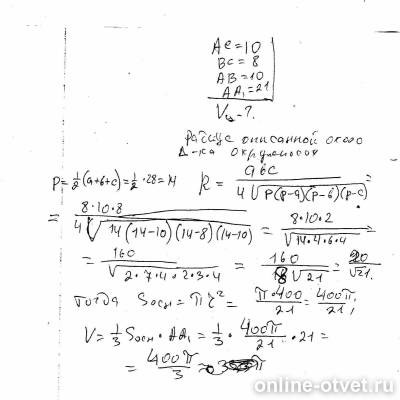 AC=10
BC=8
AB=10
AA₁=21
V -?
Радиус описанной около
Δ-ка окружности
P=½(a+b+c)=½·28=14 R=abc/(4√(P(p-a)(p-b)(p-c)))=
=8·10·8/(4√(14(14-10)(14-8)(14-10)))=8·10·2/√(14·4·6·4)
=160/√(2·7·4·2·3·4)=160/(8√21)=20/√21.
тогда Sосн=πr²=π·400/21=400π/21;
V=⅓Sосн·AA₁=⅓·400π/21·21=
=400π/3
online-otvet.ru